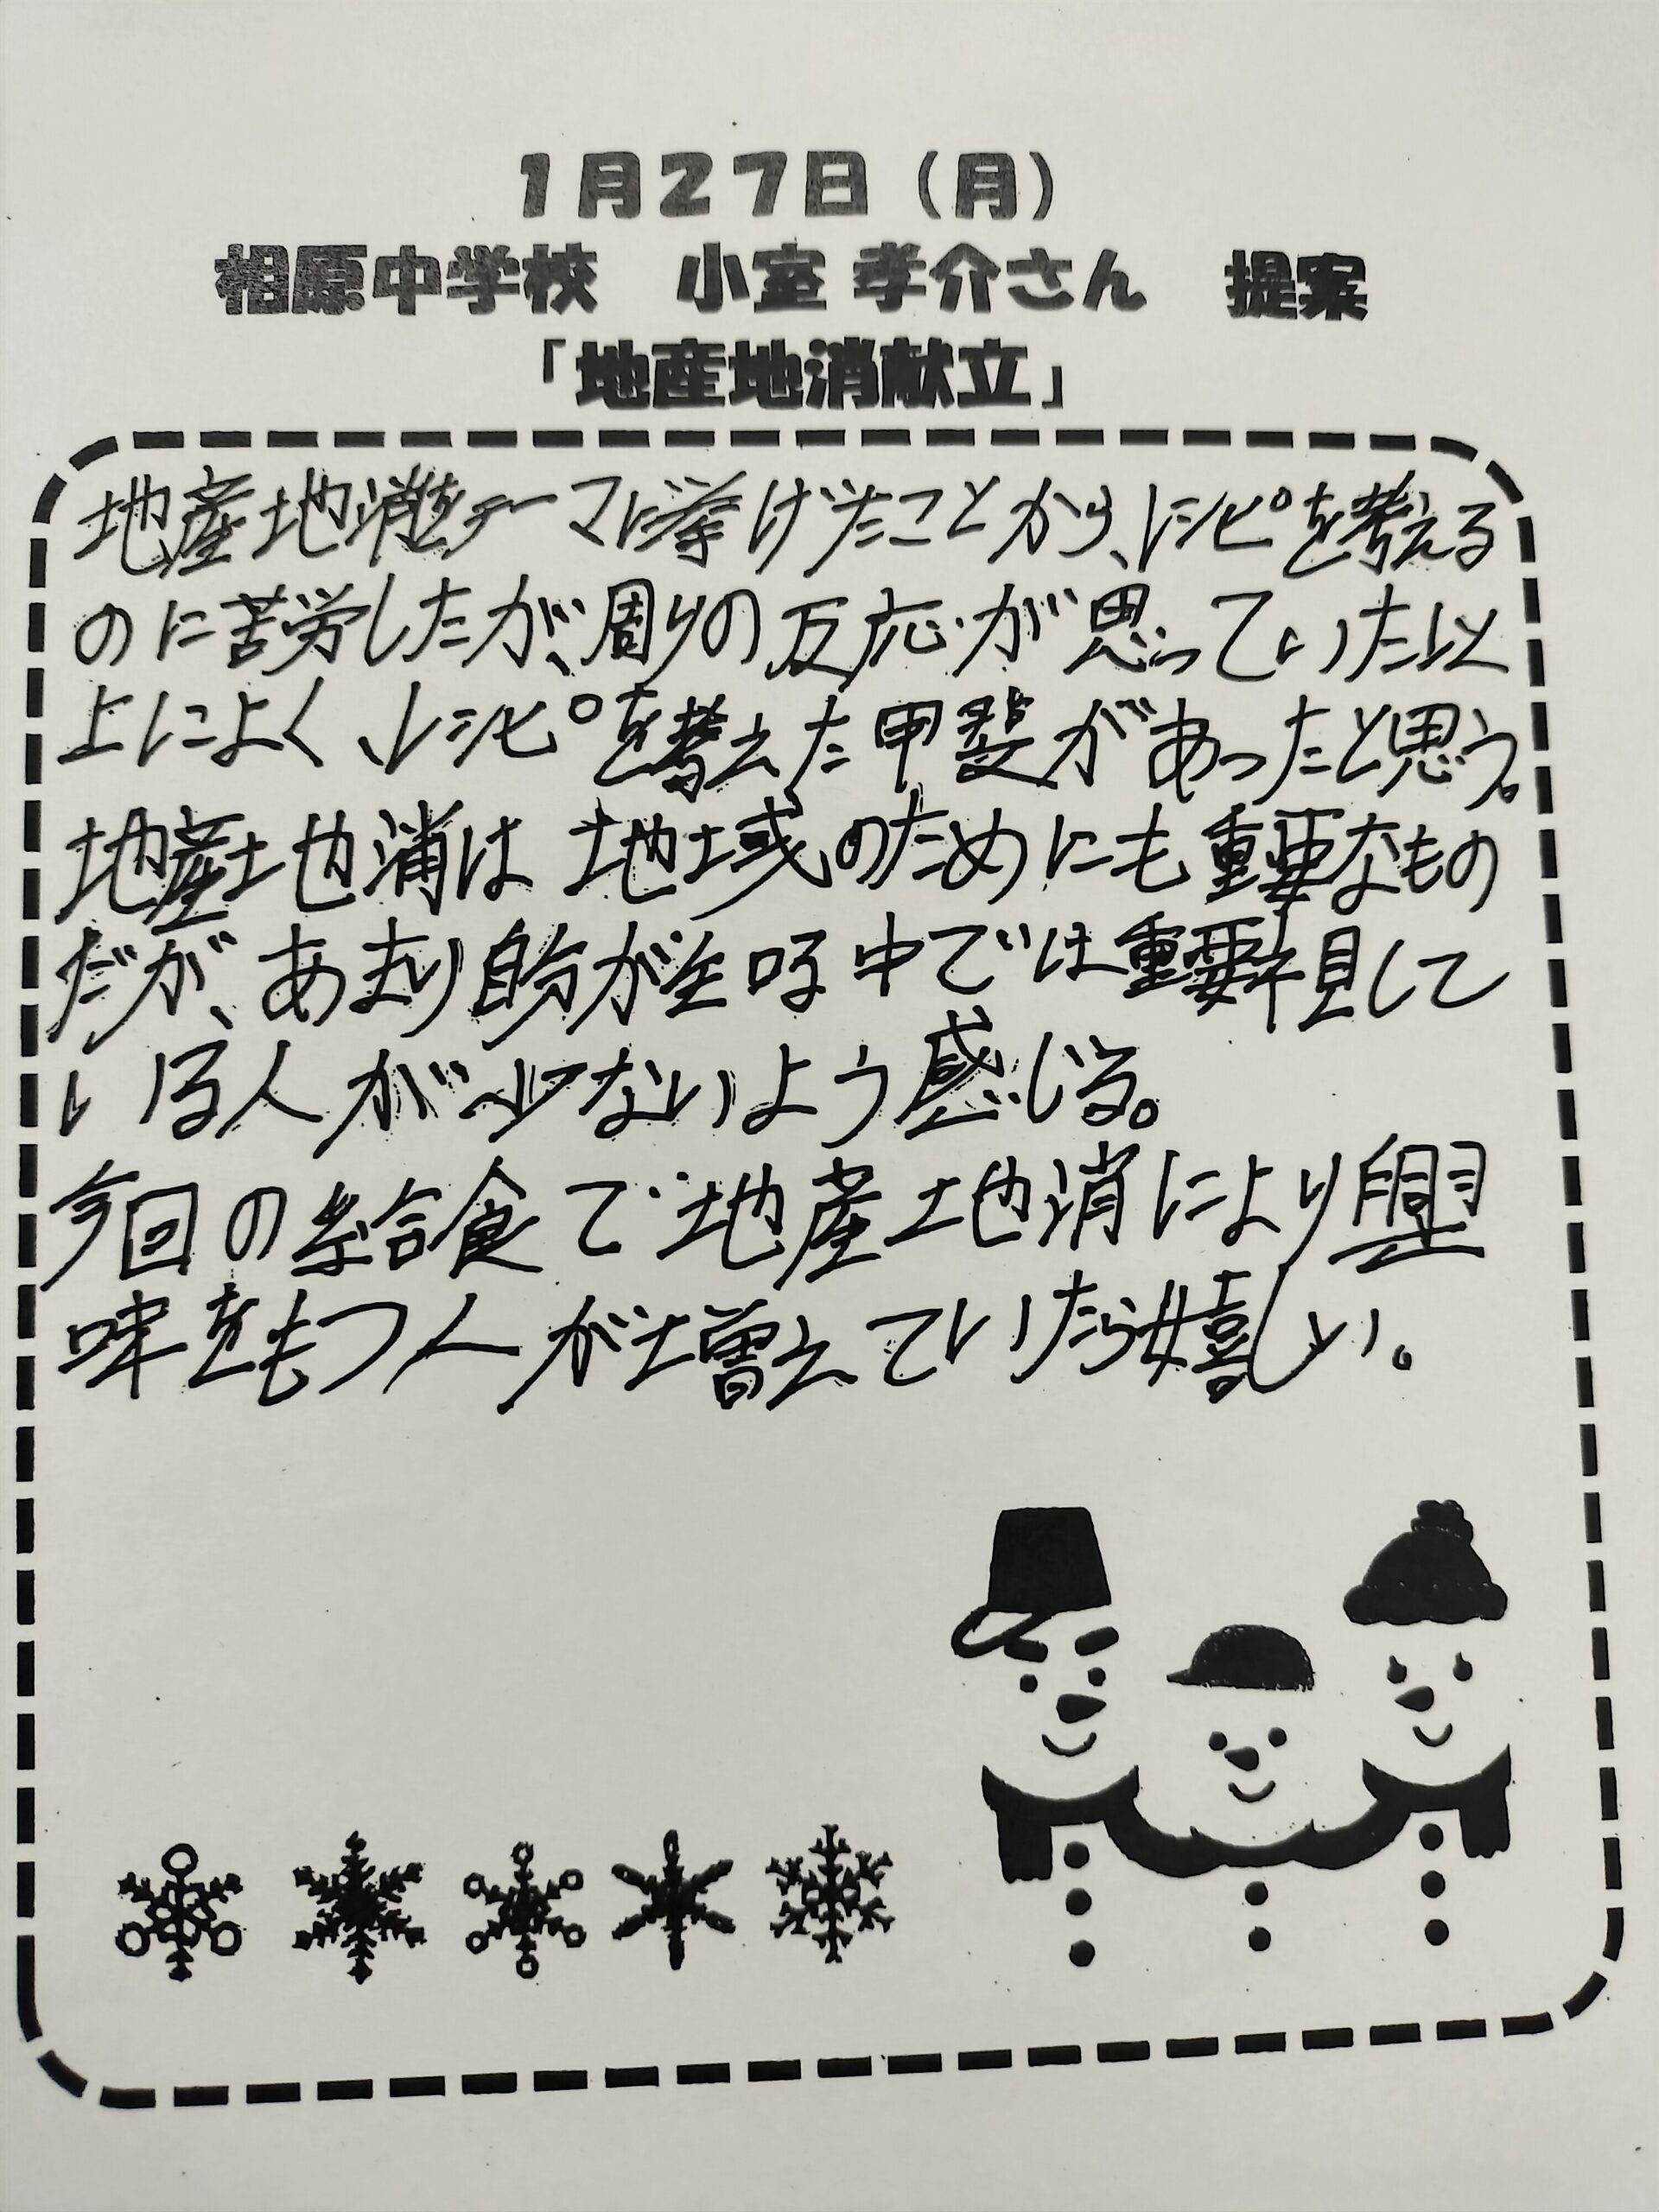 1月27日（月）
相原中学校　小室 孝介さん　提案
「地産地消献立」
地産地消をテーマに挙げたことから、レシピを考える
のに苦労したが、周りの反応が思っていた以
上によく、レシピを考えた甲斐があったと思う。
地産地消は地域のためにも重要なもの
だが、あまり自分が生きる中では重要視して
いる人が少ないよう感じる。
今回の給食で地産地消により興
味をもつ人が増えていたら嬉しい。